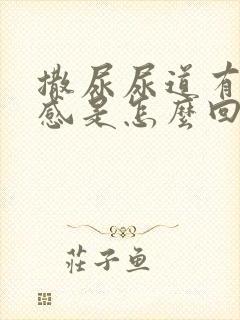 撒尿尿道有
感是怎麼回
莊子魚